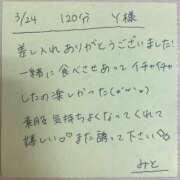 3/24 120分 Y様
差し入れありがとうございました!
一緒に食べさせあってイチャイチャ
したの楽しかった(
素股気持ちよくなってくれて
嬉しい また誘って下さい
みと